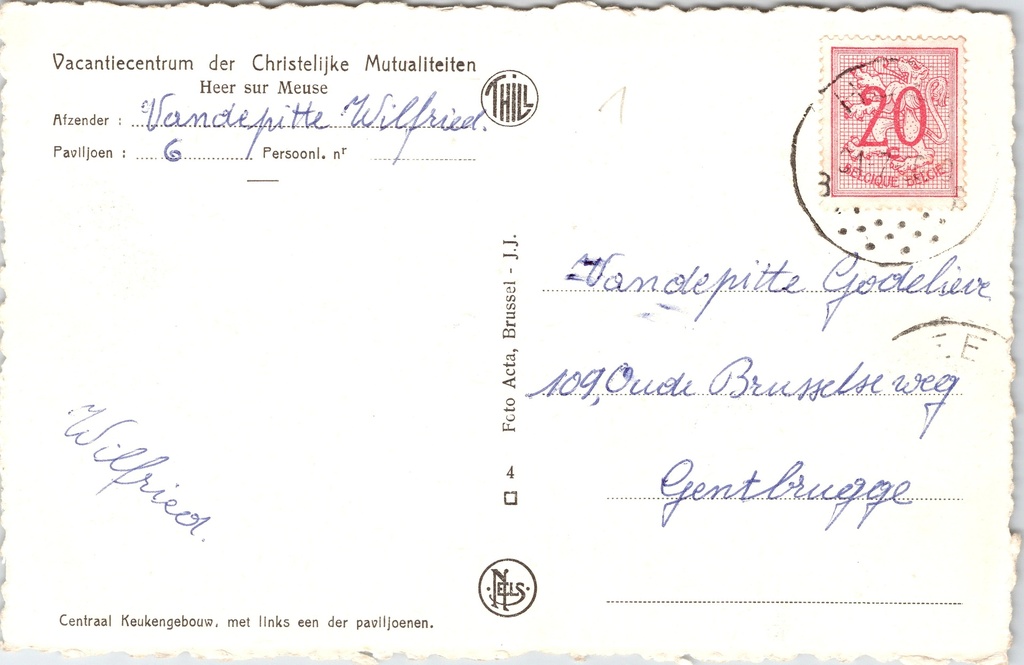 Vacantiecentrum der Christelijke Mutualiteiten
Heer sur Meuse
Afzender : Vandepitte Wilfried.
Paviljoen : 6 Persoonl. nr
THILL
1
20
BELGIQUE BELGIË
Vandepitte Godelieve
109, Oude Brusselse weg
Gentbrugge
Foto Acta, Brussel - J.J.
4
Wilfried.
NELS
Centraal Keukengebouw, met links een der paviljoenen.